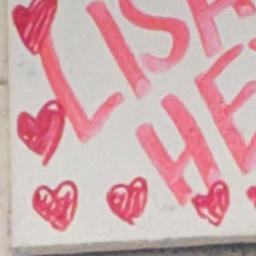 LISA
HE